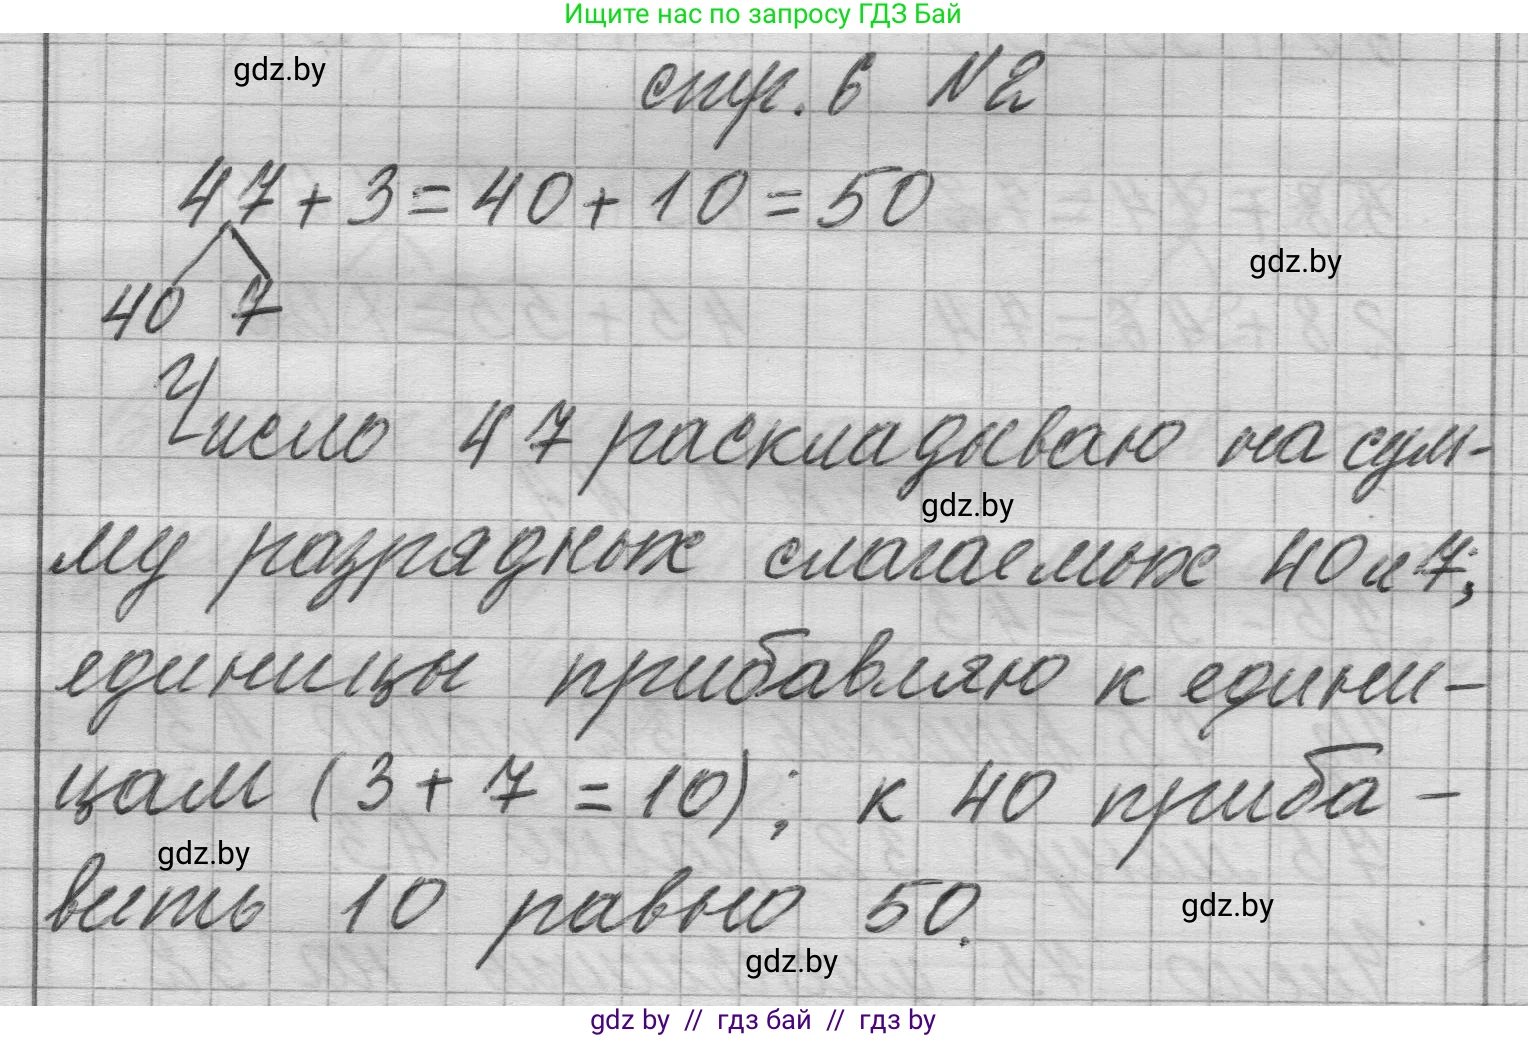 Ищите нас по запросу ГДЗ Бай
gdz.by
стр. 6 №2
47+3=40+10=50
gdz.by
40 7
Число 47 раскладываю на сум-
gdz.by
му разрядных слагаемых 40 и 7;
единицы прибавляю к едини-
цам (3+7=10); к 40 приба-
gdz.by
вить 10 равно 50.
gdz.by
gdz.by
gdz by // гдз бай // гдз by